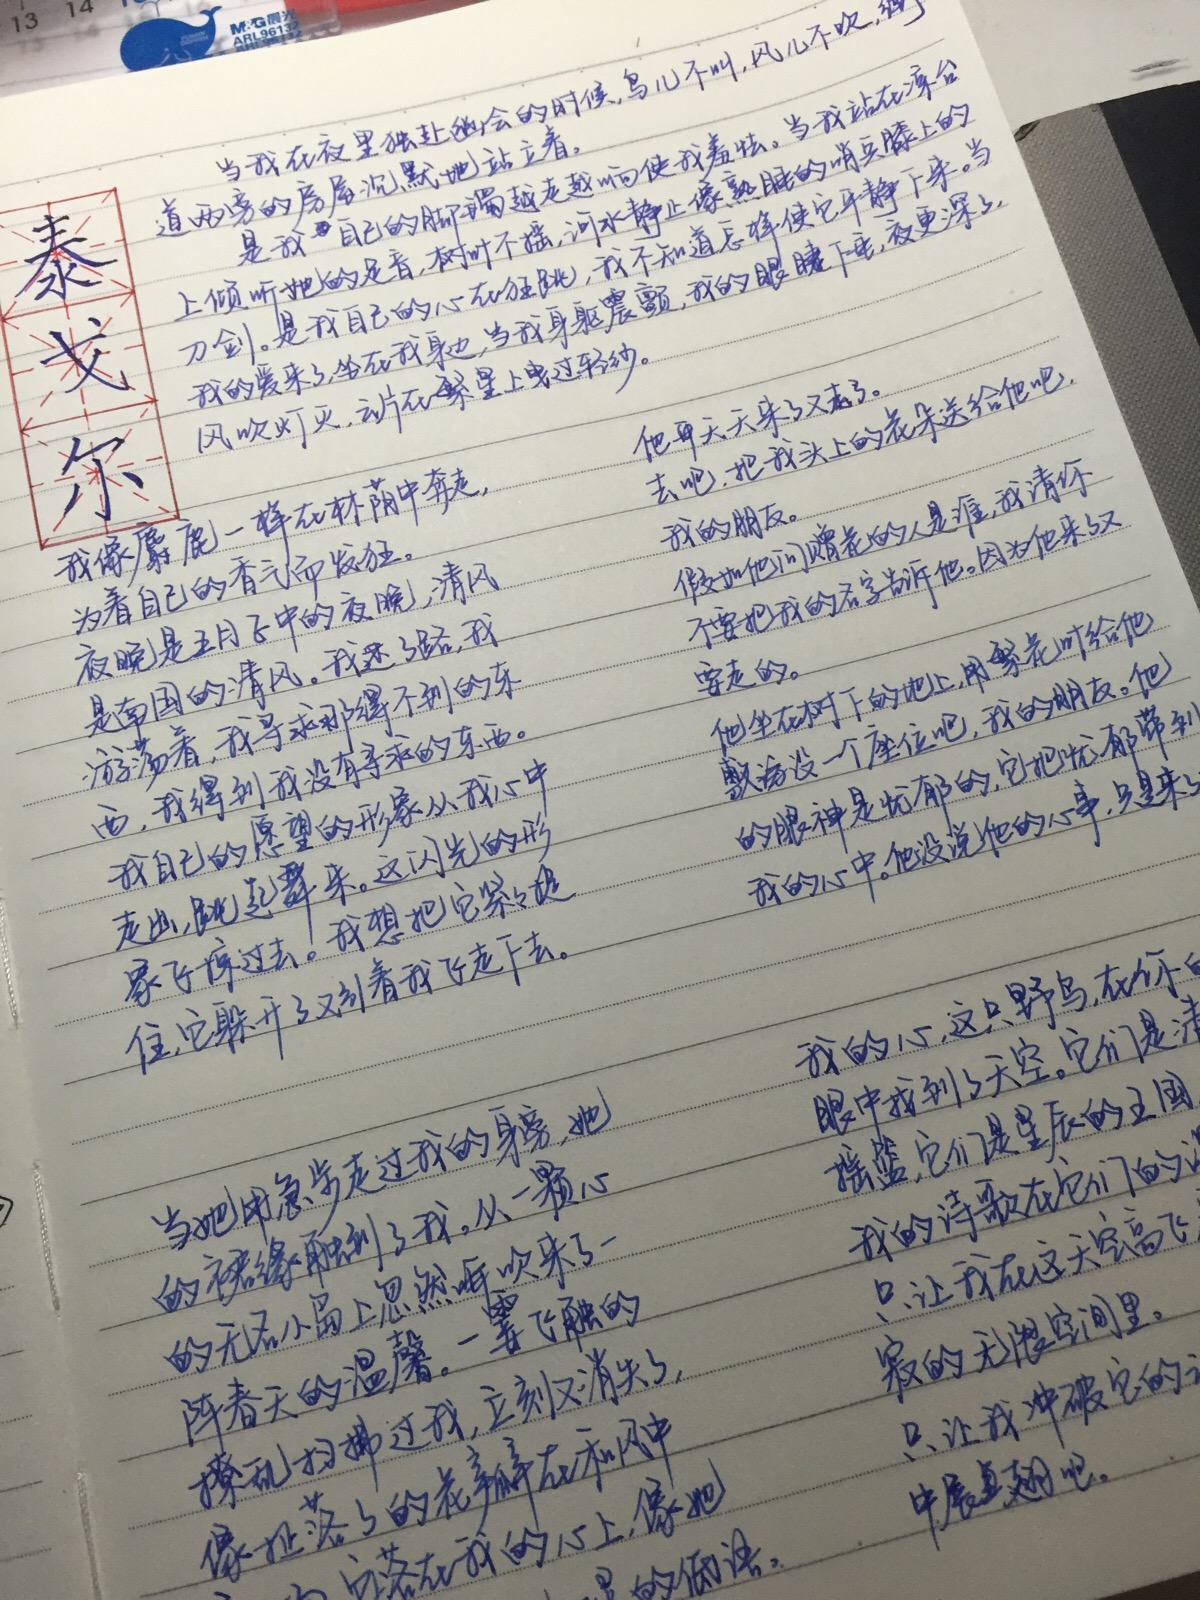 13 14
M&G晨光
ARL96132
泰
戈
尔
当我在夜里独赴幽会的时候,鸟儿不叫,风儿不吹,
道两旁的房屋沉默地站立着。
是我自己的脚镯越走越响使我羞怯。当我站在凉台
上倾听他的足音,树叶不摇,河水静止像熟睡的哨兵膝上的
刀剑。是我自己的心在狂跳,我不知道怎样使它平静下来。当
我的爱来了,坐在我身边,当我身躯震颤,我的眼睫下垂,夜更深了,
风吹灯灭,云片在繁星上曳过轻纱。
我像麝鹿一样在林荫中奔走,
为着自己的香气而发狂。
夜晚是五月正中的夜晚,清风
是南国的清风。我迷了路,我
游荡着,我寻求那得不到的东
西,我得到我没有寻求的东西。
我自己的愿望的形象从我心中
走出,跳起舞来。这闪光的形
象飞掠过去。我想把它紧紧捉
住,它躲开了又引着我飞走下去。
他天天来了又走了。
去吧,把我头上的花朵送给他吧,
我的朋友。
假如他问赠花的人是谁,我请你
不要把我的名字告诉他。因为他来了又
要走的。
他坐在树下的地上,用繁花叶给他
敷设一个座位吧,我的朋友。他
的眼神是忧郁的,它把忧郁带到
我的心中。他没说他的心事,只是来了
当她用急步走过我的身旁,她
的裙缘触到了我。从一颗心
的无名小岛上忽然吹来了一
阵春天的温馨。一霎飞触的
撩乱扫拂过我,立刻又消失了,
像扯落了的花瓣在和风中
落在我的心上,像她
的低语。
我的心,这只野鸟,在你的
眼中找到了天空。它们是清
摇篮,它们是星辰的王国
我的诗歌在它们的
只让我在这天空高飞
寂的无限空间里。
只让我冲破它的
中展翅吧。